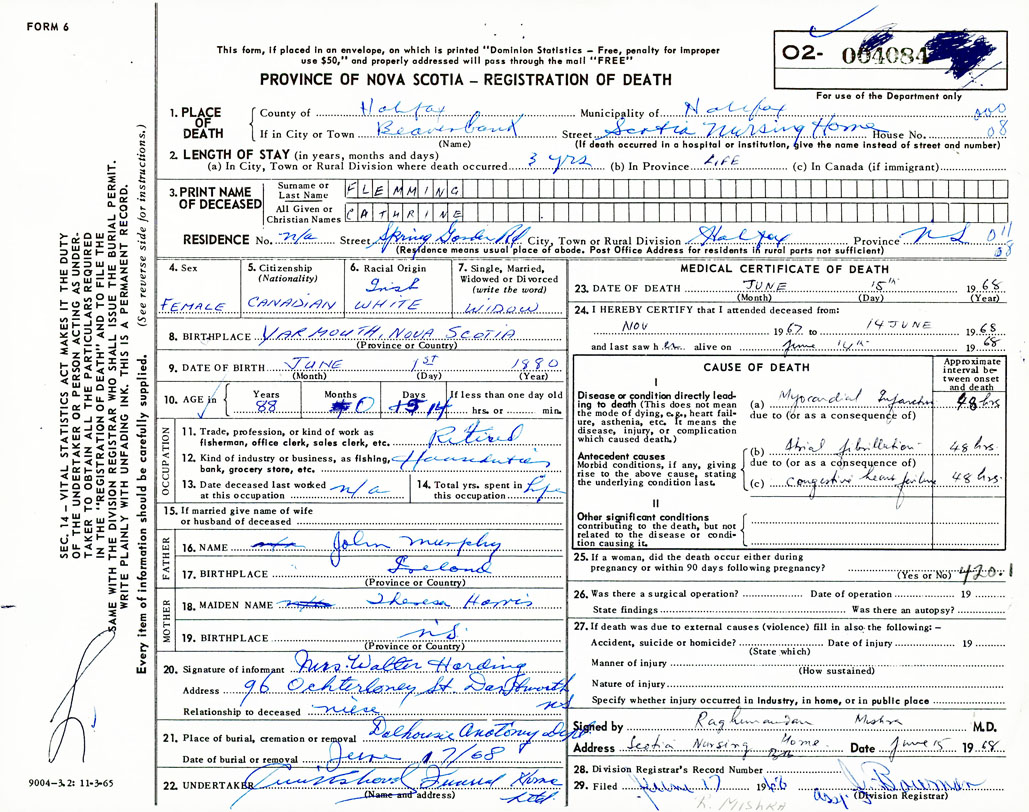 FORM 6
This form, if placed in an envelope, on which is printed "Dominion Statistics – Free, penalty for improper
use $50," and properly addressed will pass through the mail "FREE"
PROVINCE OF NOVA SCOTIA – REGISTRATION OF DEATH
O2- 004084
For use of the Department only
SEC. 14 – VITAL STATISTICS ACT MAKES IT THE DUTY
OF THE UNDERTAKER OR PERSON ACTING AS UNDER-
TAKER TO OBTAIN ALL THE PARTICULARS REQUIRED
IN THE "REGISTRATION OF DEATH" AND TO FILE THE
SAME WITH THE DIVISION REGISTRAR WHO SHALL ISSUE THE BURIAL PERMIT.
WRITE PLAINLY WITH UNFADING INK. THIS IS A PERMANENT RECORD.
Every item of information should be carefully supplied. (See reverse side for instructions.)
1. PLACE OF DEATH
County of Halifax Municipality of Halifax 000
If in City or Town Beaverbank Street Scotia Nursing Home House No. 08
(Name) (If death occurred in a hospital or institution, give the name instead of street and number)
2. LENGTH OF STAY (in years, months and days)
(a) In City, Town or Rural Division where death occurred 3 yrs (b) In Province LIFE (c) In Canada (if immigrant)
3. PRINT NAME OF DECEASED
Surname or Last Name FLEMMING
All Given or Christian Names CATHRINE
RESIDENCE No. n/a Street Spring Garden Rd City, Town or Rural Division Halifax Province NS 011
(Residence means usual place of abode. Post Office Address for residents in rural parts not sufficient) 08
4. Sex FEMALE
5. Citizenship (Nationality) CANADIAN
6. Racial Origin Irish WHITE
7. Single, Married, Widowed or Divorced (write the word) WIDOW
8. BIRTHPLACE YARMOUTH, NOVA SCOTIA
(Province or Country)
9. DATE OF BIRTH JUNE 1ST 1880
(Month) (Day) (Year)
10. AGE in Years 88 Months 0 Days 14 If less than one day old hrs. or min.
OCCUPATION
11. Trade, profession, or kind of work as fisherman, office clerk, sales clerk, etc. Retired
12. Kind of industry or business, as fishing, bank, grocery store, etc.
13. Date deceased last worked at this occupation n/a
14. Total yrs. spent in this occupation Life
15. If married give name of wife or husband of deceased
FATHER
16. NAME John Murphy
17. BIRTHPLACE Ireland
(Province or Country)
MOTHER
18. MAIDEN NAME Theresa Harris
19. BIRTHPLACE NS
(Province or Country)
20. Signature of informant Mrs. Walter Harding
Address 96 Ochterloney St Dartmouth NS
Relationship to deceased niese
21. Place of burial, cremation or removal Dalhousie Anatomy Dept
Date of burial or removal June 17/68
22. UNDERTAKER Funeral Home Ltd
(Name and address)
9004-3.2: 11-3-65
MEDICAL CERTIFICATE OF DEATH
23. DATE OF DEATH JUNE 15th 1968
(Month) (Day) (Year)
24. I HEREBY CERTIFY that I attended deceased from:
NOV 1967 to 14 JUNE 1968
and last saw her alive on June 14th 1968
CAUSE OF DEATH
Approximate interval between onset and death
I
Disease or condition directly leading to death (This does not mean the mode of dying, e.g., heart failure, asthenia, etc. It means the disease, injury, or complication which caused death.)
(a) Myocardial Infarction 48 hrs
due to (or as a consequence of)
Antecedent causes
Morbid conditions, if any, giving rise to the above cause, stating the underlying condition last.
(b) Atrial fibrillation 48 hrs.
due to (or as a consequence of)
(c) Congestive heart failure 48 hrs.
II
Other significant conditions contributing to the death, but not related to the disease or condition causing it.
25. If a woman, did the death occur either during
pregnancy or within 90 days following pregnancy? 420.1
(Yes or No)
26. Was there a surgical operation? Date of operation 19
State findings Was there an autopsy?
27. If death was due to external causes (violence) fill in also the following: –
Accident, suicide or homicide? Date of injury 19
(State which)
Manner of injury
(How sustained)
Nature of injury
Specify whether injury occurred in Industry, in home, or in public place
Signed by Raghunandan Mishra M.D.
Address Scotia Nursing Home Date June 15 1968
28. Division Registrar's Record Number
29. Filed June 17 1968
(Division Registrar)
R. MISHRA